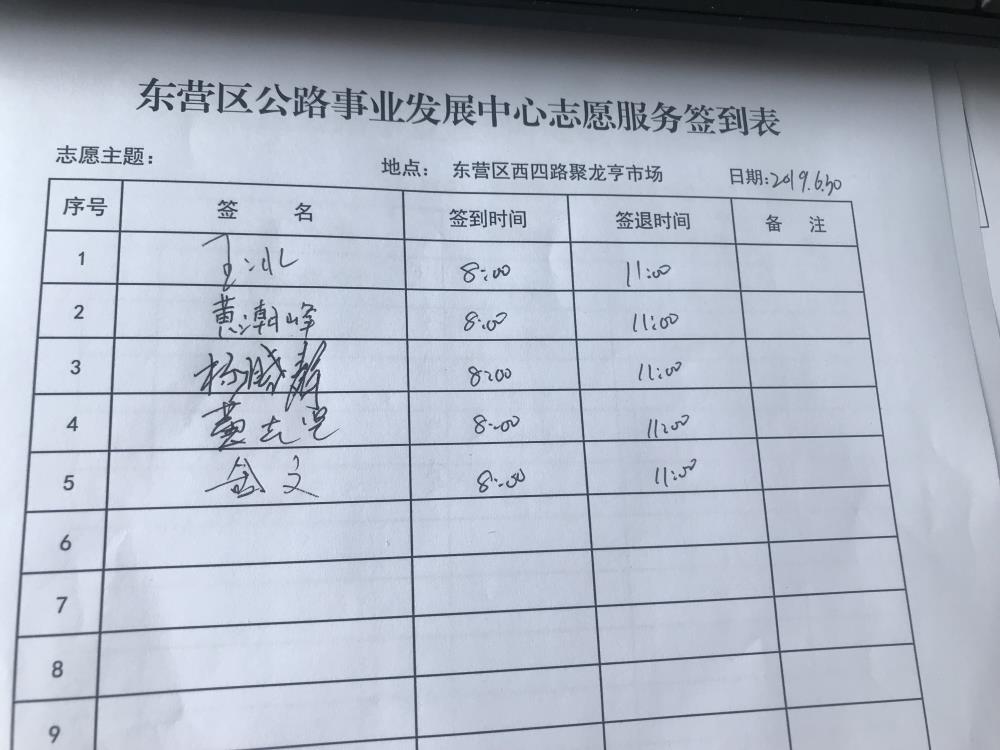 东营区公路事业发展中心志愿服务签到表
志愿主题： 地点： 东营区西四路聚龙亨市场 日期：2019.6.30
序号 签 名 签到时间 签退时间 备 注
1 8:00 11:00
2 黄潮峰 8:00 11:00
3 8:00 11:00
4 黄志 8:00 11:00
5 文 8:00 11:00
6
7
8
9